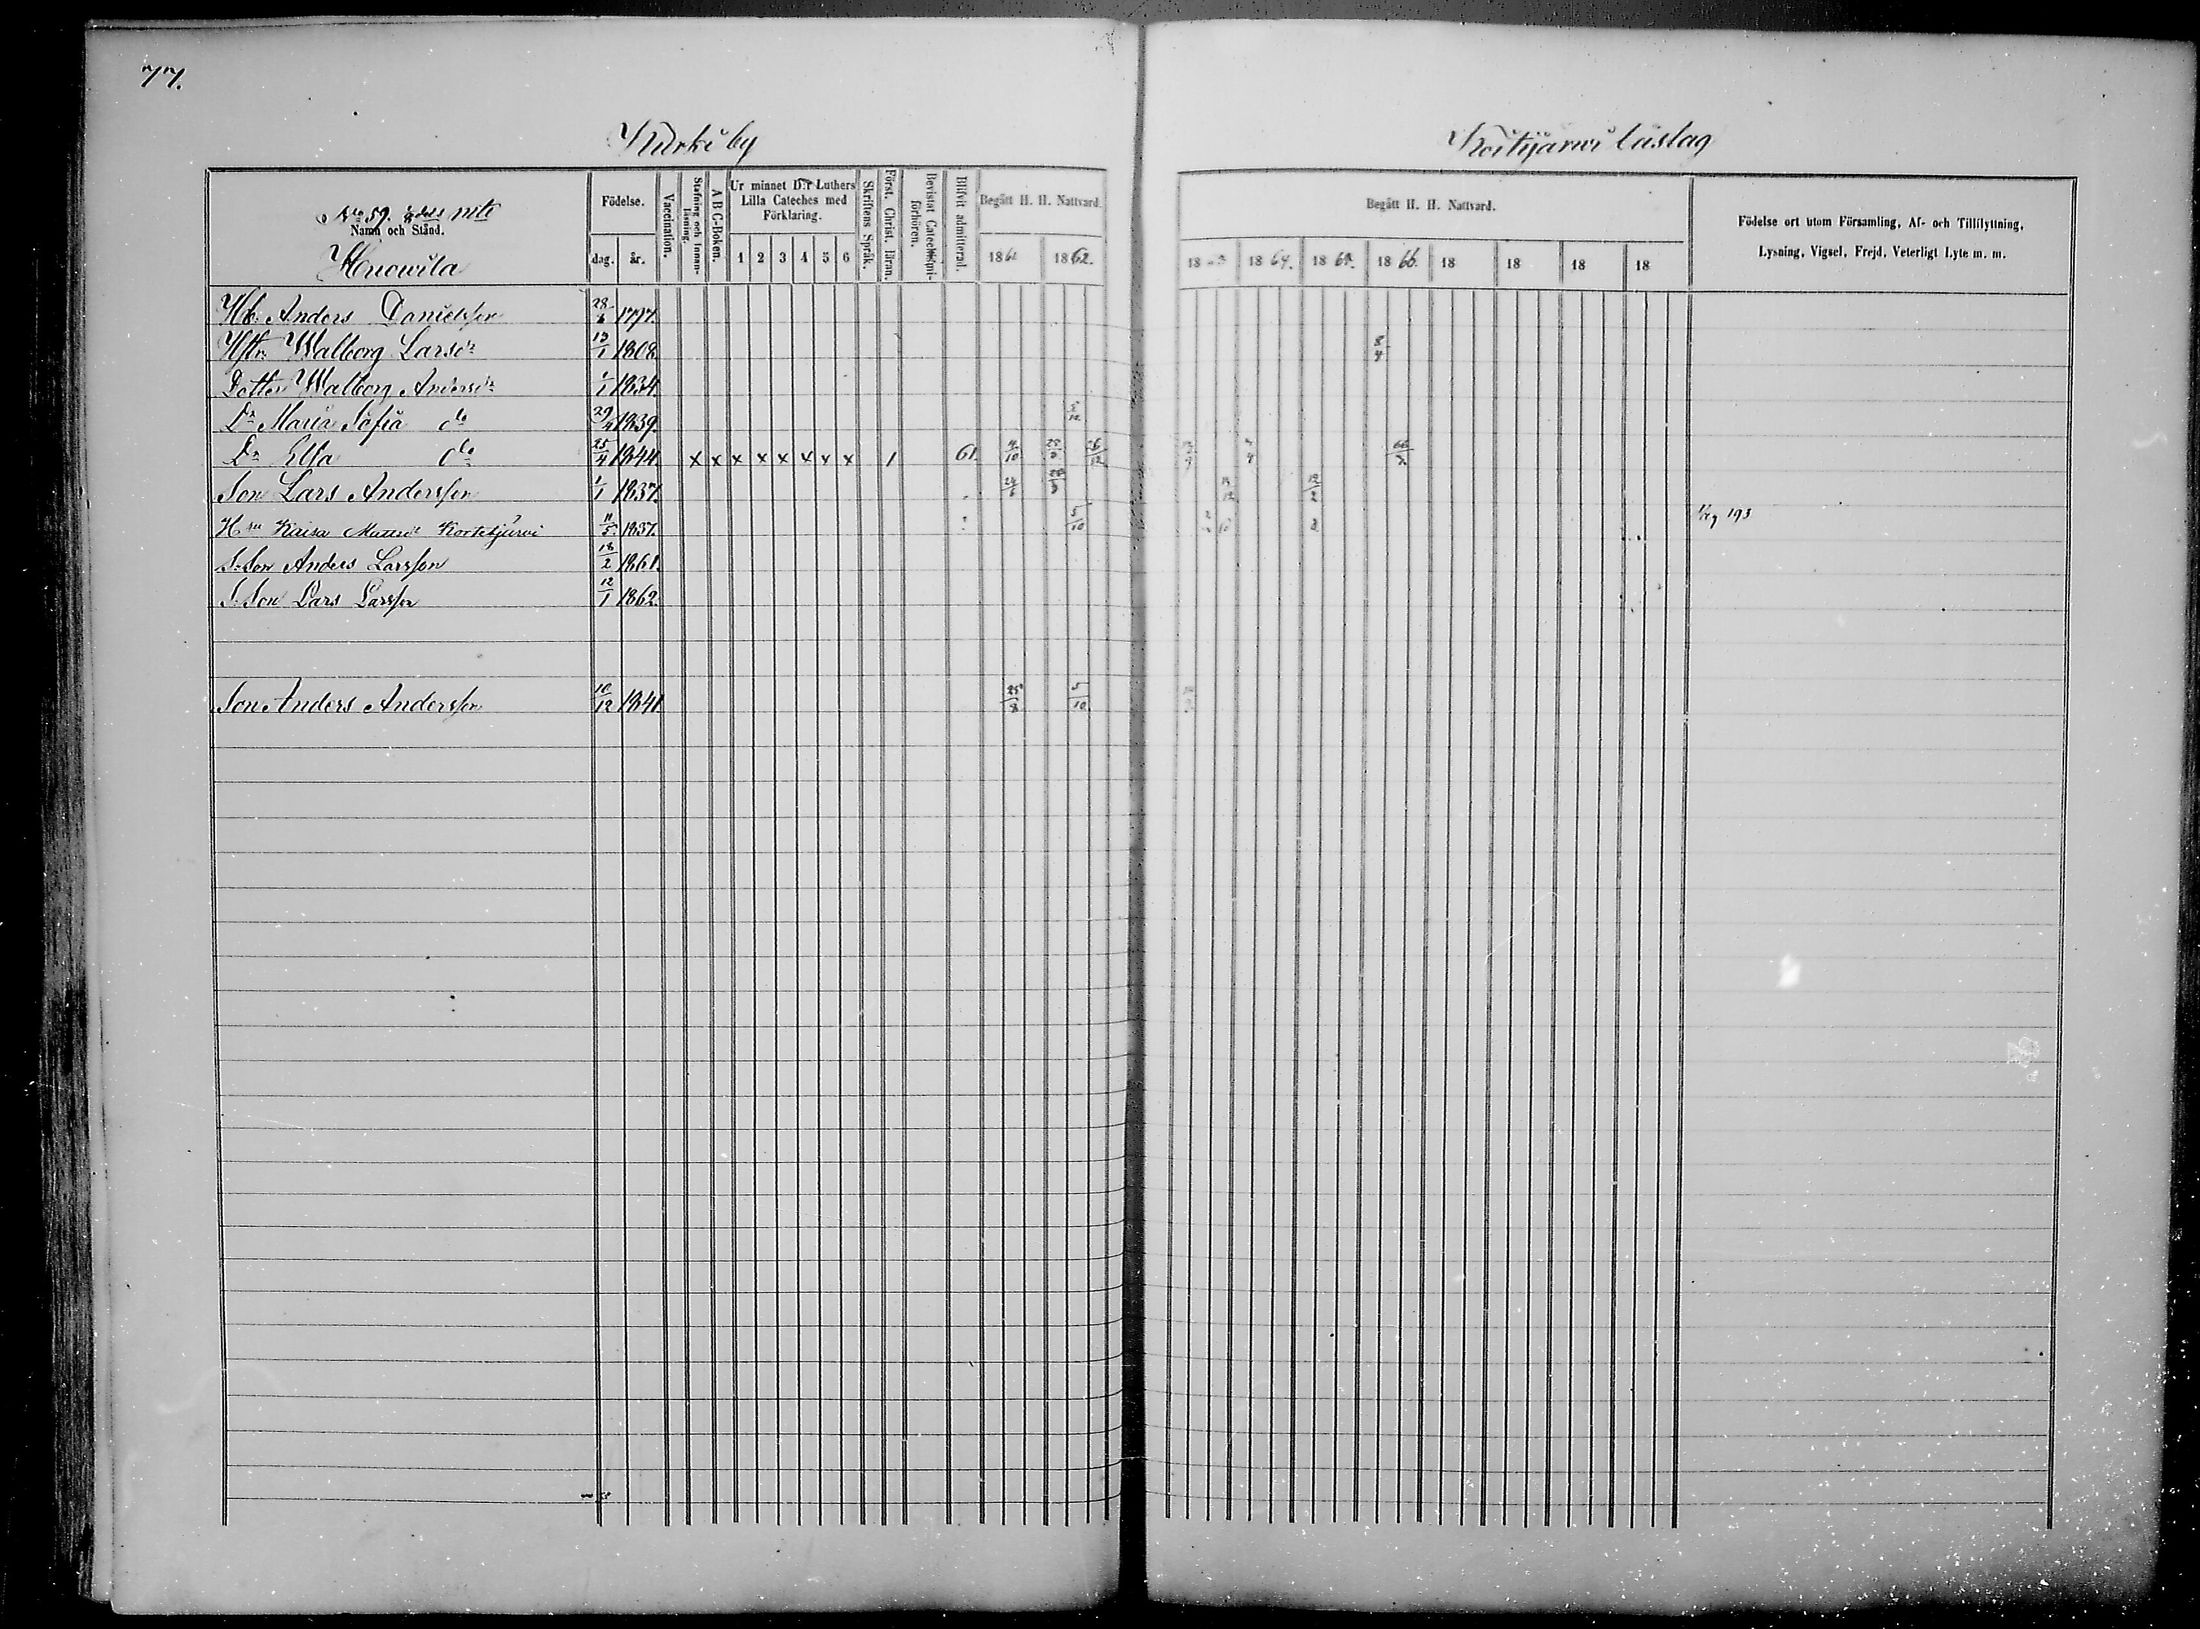 77.
Kurki by
No 59. nite
Namn och Stånd.
Födelse.
dag. år.
Vaccination.
Stafning och Innan-läsning.
A B C-Boken.
Ur minnet D:r Luthers Lilla Cateches med Förklaring.
1 2 3 4 5 6
Skriftens Språk.
Först. Christ. läran.
Bevistat Catechismi-förhören.
Blifvit admitterad.
Begått H. H. Nattvard.
1861 1862.
Hb. Anders Danielsson 28/6 1797.
Hstr. Walborg Larsdr 13/1 1808
Dotter Walborg Andersdr 1/1 1834.
Dr Maria Sofia do 29/4 1839. 5/10
Dr Elsa do 25/4 1844. x x x x x x x x 1 61. 4/10 26/12
Son Lars Andersson 1/1 1837. 24/6
Hru Kaisa Mattsdr Kortesjärvi 11/5 1837. 5/10
S. Son Anders Larsson 18/2 1861.
S. Son Lars Larsson 12/1 1862.
Son Anders Andersson 10/12 1841 25/8 5/10
läslag
Begått H. H. Nattvard.
18 1864. 1865. 1866. 18 18 18 18
Födelse ort utom Församling, Af- och Tillflyttning,
Lysning, Vigsel, Frejd, Veterligt Lyte m. m.
8/4
12/2
193